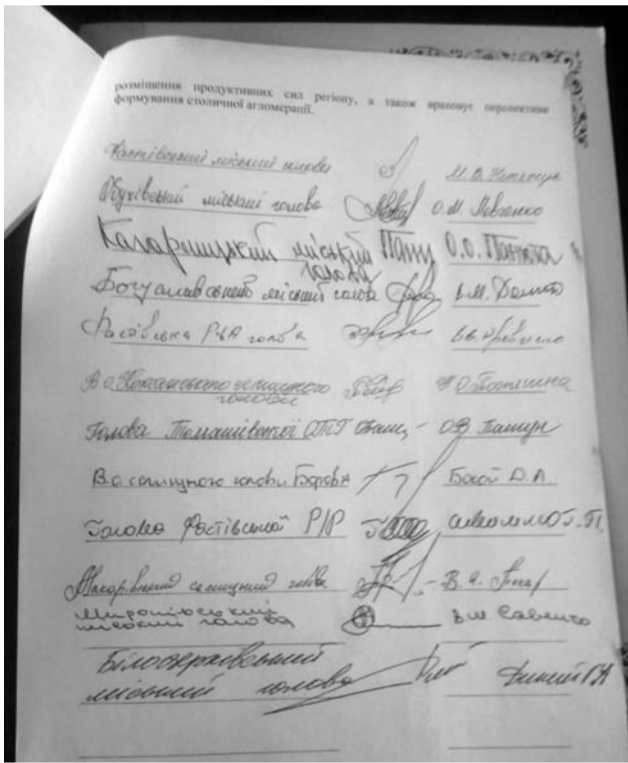 розміщення продуктивних сил регіону, а також враховує перспективи
формування столичної агломерації.
Фастівський міський голова М.В.
Обухівський міський голова О.М. Левченко
Кагарлицький міський голова О.О. Панюта
Богуславський міський голова В.М.
Фастівська РДА голова В.В.
В.О. Кожанського селищного голови
Голова Томашівської ОТГ О.В.
В.о. селищного голови Борова Бокой Д.А.
Голова Фастівської Р/Р
Макарівський селищний голова В.Я.
Миронівський
міський голова В.М. Савенко
Білоцерківський
міський голова Дикий Г.А